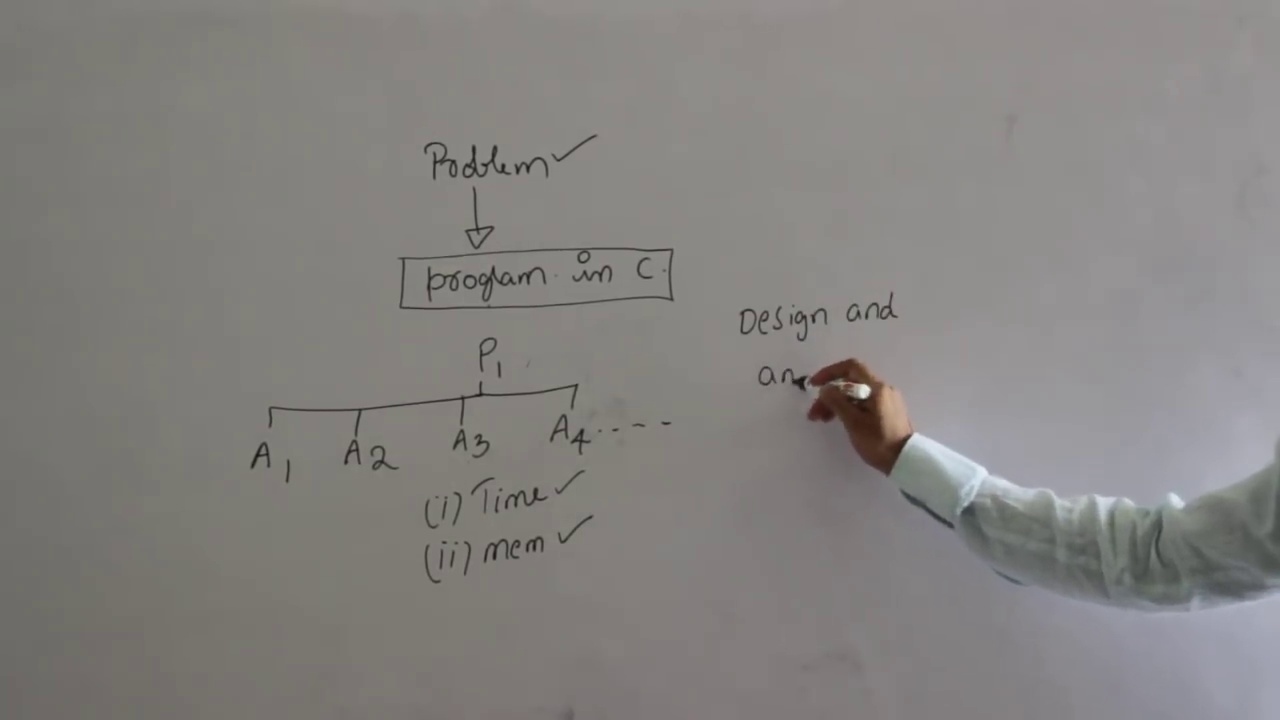 Problem ✓
program in C.
P1
A1 A2 A3 A4 ----
(i) Time ✓
(ii) mem ✓
Design and
an